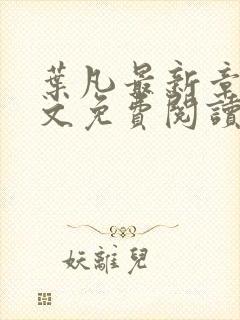 葉凡最新章
文免費閱讀
妖離兒